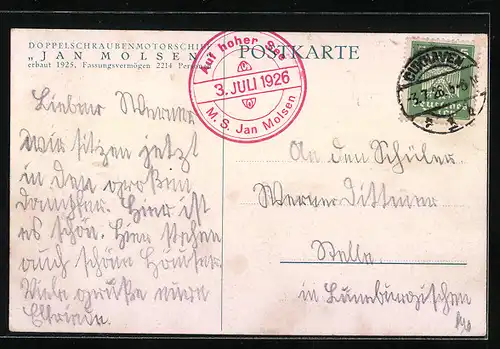 DOPPELSCHRAUBENMOTORSCHIFF
„JAN MOLSEN"
erbaut 1925, Fassungsvermögen 2214 Personen
POSTKARTE
Auf hoher See
3. JULI 1926
M. S. Jan Molsen
CUXHAVEN
Deutsches
Lieber Werner
wir sitzen jetzt
in den großen
Dampfer. Hier ist
es schön. Hier stehen
auch schöne Häuser.
Viele Grüße
An den Schüler
Werner Dittmer
Stelle
in Lüneburgischen